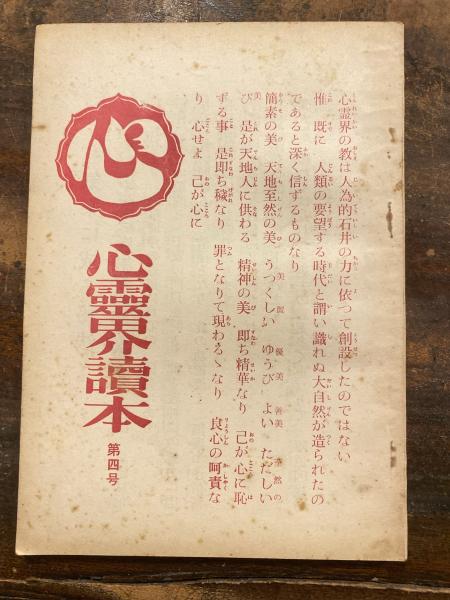 心霊界の教は人為的石井の力に依つて創設したのではない
惟 既に 人類の要望する時代と謂い識れぬ大自然が造られたの
であると深く信ずるものなり
簡素の美 天地至然の美 うつくしい 美麗 ゆうび 優美 よい 善美 ただしい
び 美 是が天地人に供わる 精神の美 即ち精華なり 己が心に恥
ずる事 是即ち穢なり 罪となりて現わるゝなり 良心の呵責な
り 心せよ 己が心に
心
心霊界讀本
第四号